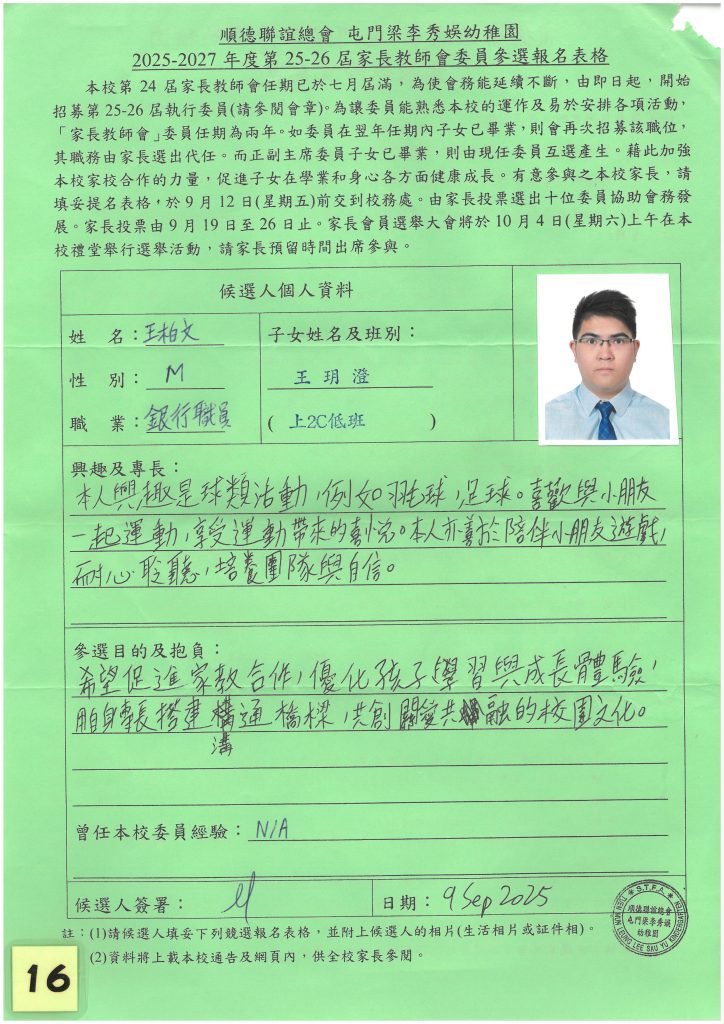 順德聯誼總會 屯門梁李秀娛幼稚園
2025-2027 年度第 25-26 屆家長教師會委員參選報名表格
本校第 24 屆家長教師會任期已於七月屆滿，為使會務能延續不斷，由即日起，開始
招募第 25-26 屆執行委員(請參閱會章)。為讓委員能熟悉本校的運作及易於安排各項活動，
「家長教師會」委員任期為兩年。如委員在翌年任期內子女已畢業，則會再次招募該職位，
其職務由家長選出代任。而正副主席委員子女已畢業，則由現任委員互選產生。藉此加強
本校家校合作的力量，促進子女在學業和身心各方面健康成長。有意參與之本校家長，請
填妥提名表格，於 9 月 12 日(星期五)前交到校務處。由家長投票選出十位委員協助會務發
展。家長投票由 9 月 19 日至 26 日止。家長會員選舉大會將於 10 月 4 日(星期六)上午在本
校禮堂舉行選舉活動，請家長預留時間出席參與。
候選人個人資料
姓 名：王柏文
子女姓名及班別：
性 別：M
王 玥 澄
職 業：銀行職員
( 上2C低班 )
興趣及專長：
本人興趣是球類活動，例如羽毛球，足球。喜歡與小朋友
一起運動，享受運動帶來的喜悅。本人亦善於陪伴小朋友遊戲，
耐心聆聽，培養團隊與自信。
參選目的及抱負：
希望促進家教合作，優化孩子學習與成長體驗，
用自身專長搭建溝通橋樑，共創關愛共融的校園文化。
曾任本校委員經驗：N/A
候選人簽署：
日期：9 Sep 2025
註：(1)請候選人填妥下列競選報名表格，並附上候選人的相片(生活相片或証件相)。
(2)資料將上載本校通告及網頁內，供全校家長參閱。
S.T.F.A.
順德聯誼總會
屯門梁李秀娛
幼稚園
TUEN MUN LEUNG LEE SAU YU KINDERGARTEN
16